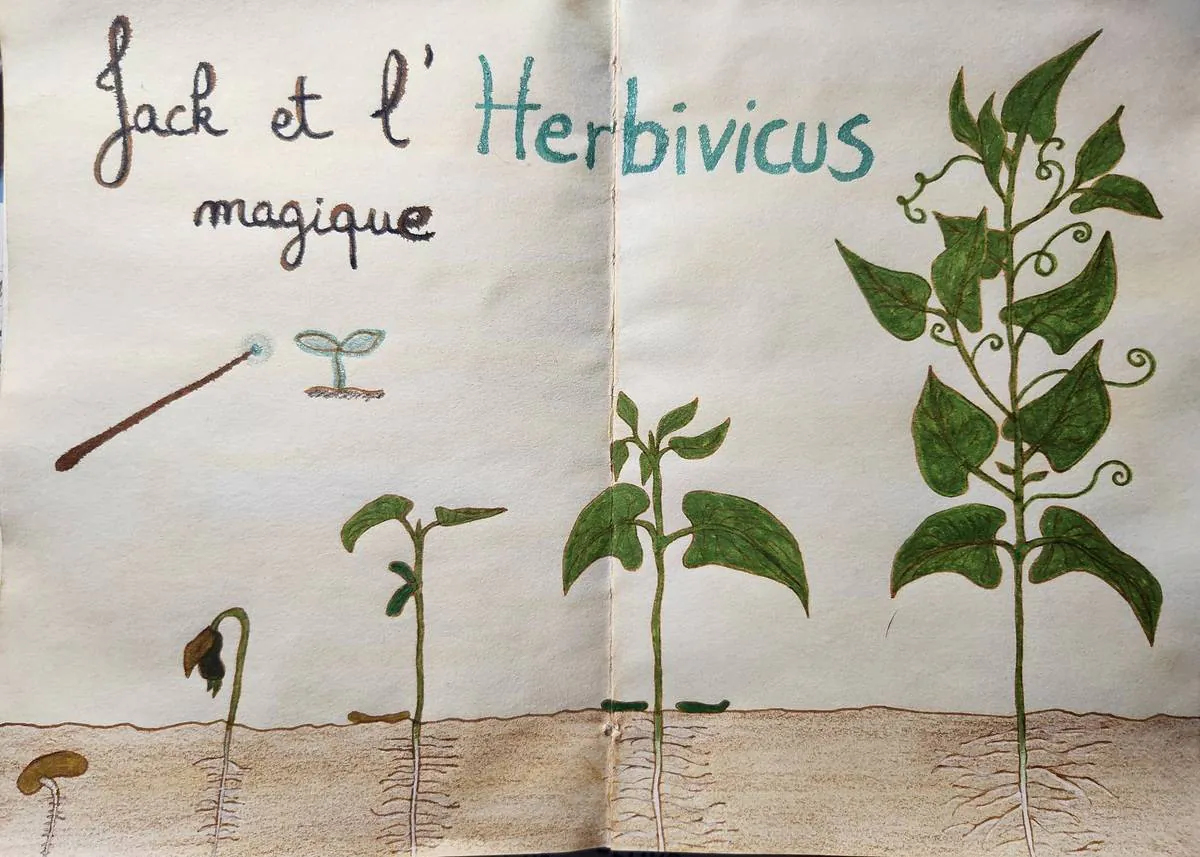 Jack et l'Herbivicus
magique